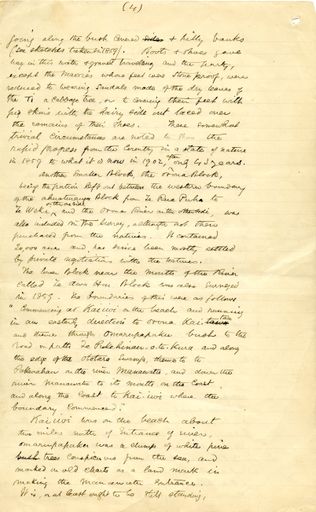 (4)
going along the bush covered & hilly banks
(See sketches taken in 1859). Boots & shoes gave
way in this rough & gravel travelling and the party,
except the Maories whose feet were stone proof, were
reduced to wearing sandals made of the dry leaves of
the Ti or Cabbage tree, or to covering their feet with
pig skins with the hairy side out laced over
the remains of their shoes. These somewhat
trivial circumstances are noted to show the
rapid progress from the Country in a state of nature
in 1859 to what it is now in 1902, then only 43 years.
Another smaller Block, the Oroua Block,
being the portion left out between the western boundary
of the Ahuaturanga block from Te Rua Puha to
Te Wekau and the Oroua River on the other side, was
also included in this survey, although not then
purchased from the natives. It contained
20,000 acres and has since been mostly settled
by private negotiation with the natives.
The lower Block near the mouth of the River
called Te Awa Hou Block was also surveyed
in 1859. The boundaries of this were as follows
"Commencing at Kai iwi on the beach and running
in an easterly direction to Oroua Kai
and thence through Omarupapako bush to the
Road or path Te Rekereke-a-te-Kura and along
the edge of the Ototara Swamp, thence to
Pokowharo on the river Manawatu and down the
river Manawatu to its mouth on the Coast
and along the Coast to Kai-iwi where the
boundary commenced."
Kai iwi was on the beach about
two miles north of Entrance of river,
Omarupapako was a clump of white pine
trees conspicuous from the sea, and
marked on old charts as a land mark in
making the Manawatu Entrance.
It is, or at least ought to be still standing,